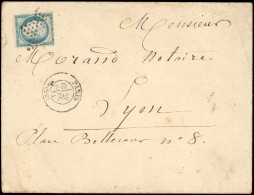 Monsieur
Morand Notaire
Lyon
Place Bellecour n° 8.
PARIS